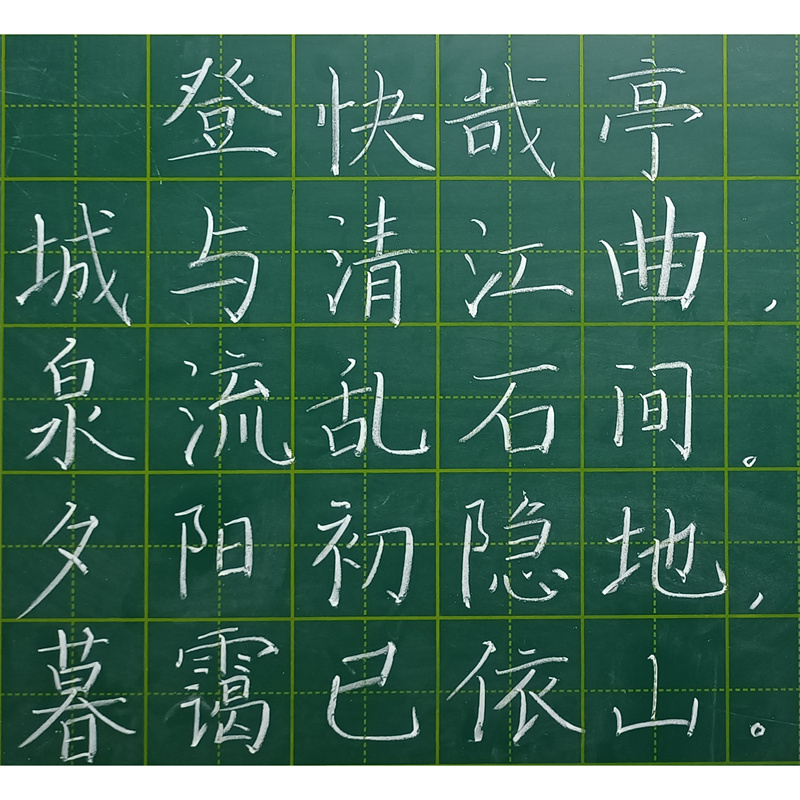 登快哉亭
城与清江曲，
泉流乱石间。
夕阳初隐地，
暮霭已依山。